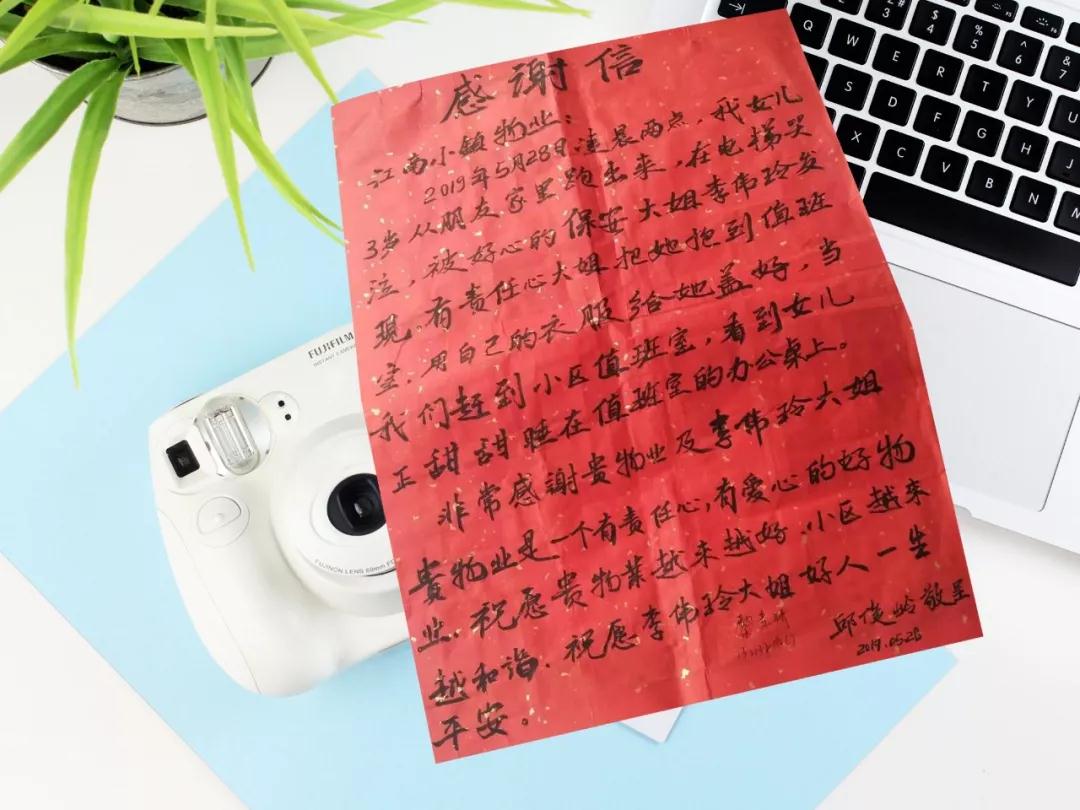 感謝信
江南小镇物业：
2019年5月28日凌晨两点，我女儿
3岁从朋友家里跑出来，在电梯哭
泣，被好心的保安大姐李伟玲发
现，有责任心大姐把她抱到值班
室，用自己的衣服给她盖好，当
我们赶到小区值班室，看到女儿
正甜甜睡在值班室的办公桌上。
非常感謝贵物业及李伟玲大姐
贵物业是一个有责任心，有爱心的好物
业，祝愿贵物業越来越好，小区越来
越和谐，祝愿李伟玲大姐好人一生
平安。
邱俊龄敬呈
2019.05.28
FUJIFILM
INSTANT CAMERA
FUJINON LENS 60mm
Q
W
E
R
T
Y
U
S
D
F
G
H
J
X
C
V
B
N
M
# 3
$ 4
% 5
^ 6
& 7